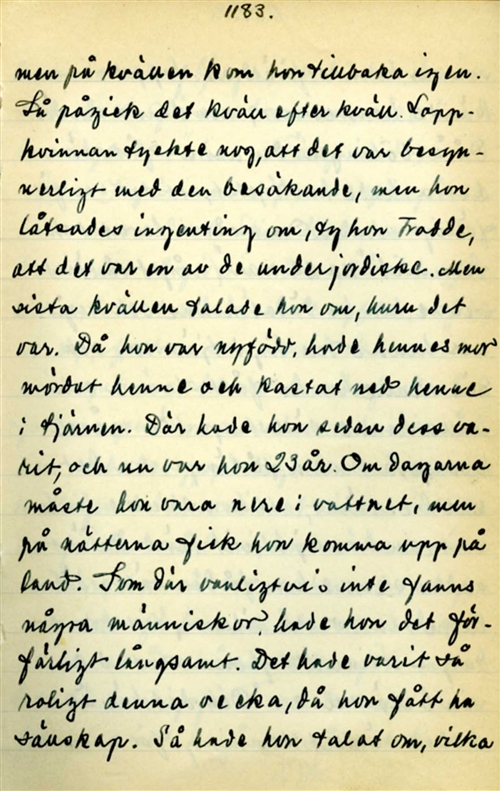 1183.
men på kvällen kom hon tillbaka igen.
Så pågick det kväll efter kväll. Lapp-
kvinnan tyckte nog, att det var besyn-
nerligt med den besökande, men hon
låtsades ingenting om, ty hon trodde,
att det var en av de underjordiske. Men
sista kvällen talade hon om, huru det
var. Då hon var nyfödd, hade hennes mor
mördat henne och kastat ned henne
i tjärnen. Där hade hon sedan dess va-
rit, och nu var hon 23 år. Om dagarna
måste hon vara nere i vattnet, men
på nätterna fick hon komma upp på
land. Som där vanligtvis inte fanns
några människor, hade hon det för-
färligt långsamt. Det hade varit så
roligt denna vecka, då hon fått ha
sällskap. Så hade hon talat om, vilka